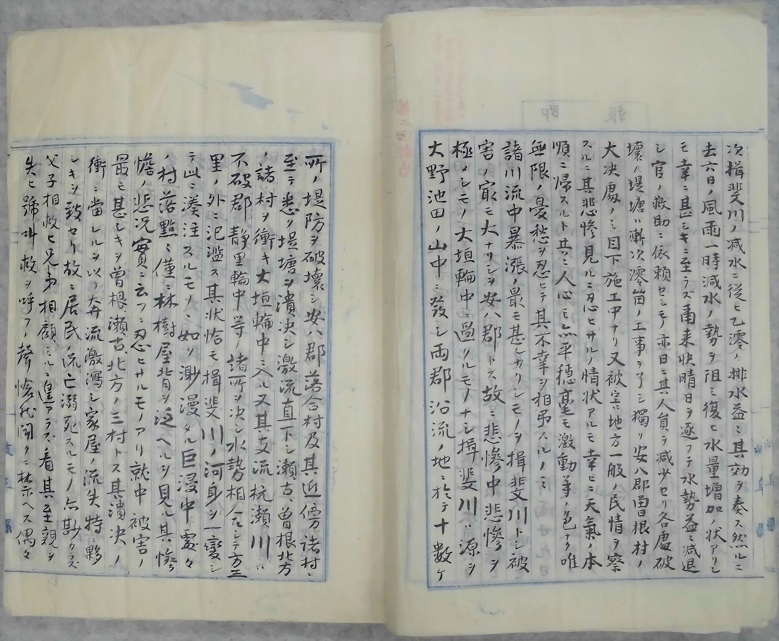 次揖斐川ノ減水ニ從ヒ乙澪ノ排水益々其効ヲ奏ス然ルニ
去六日ノ風雨一時減水ノ勢ヲ阻ミ復ヒ水量増加ノ状アリシ
モ幸ニ甚シキニ至ラス爾来快晴日ヲ逐フテ水勢益々減退
シ官ノ救助ニ依頼セシモノ亦日ニ其人員ヲ減少セリ各處破
壊ノ堤塘ハ漸次澪笛ノ工事ヲ了シ獨リ安八郡曽根村ノ
大决處ノミ目下施工中ナリ又被害地方一般ノ民情ヲ察
スルニ其悲惨見ルニ忍ヒサルノ情状アルモ幸ヒニ天氣ノ本
順ニ帰スルト共ニ人心モ亦平穏毫モ激動等ノ色ナク唯
無限ノ憂愁ヲ忍ヒテ其不幸ヲ相弔スルノミ
諸川流中暴漲ノ最モ甚シカリシモノヲ揖斐川トシ被
害ノ最モ大ナリシヲ安八郡トス故ニ悲惨中悲惨ヲ
極メシモノ大垣輪中ニ過クルモノナシ揖斐川ハ源ヲ
大野池田ノ山中ニ發シ両郡沿流ノ地ニ於テ十数ケ
所ノ堤防ヲ破壊シ安八郡落合村及其近傍諸村ニ
至テ悉ク堤塘ヲ潰决シ激流直下シ瀬古、曽根北方
ノ諸村ヲ衝キ大垣輪中ニ入ル又其支流杭瀬川ハ
不破郡静里輪中等諸所ヲ决シ水勢相合シテ方三
里ノ外ニ汜濫ス其状恰モ揖斐川ノ河身ヲ一変シ
テ此ニ湊注スルモノヽ如シ渺漫タル巨浸中處々
ノ村落點々僅ニ林樹屋背ヲ泛ヘルヲ見ル其惨
憺ノ悲况實ニ云フニ忍ヒサルモノアリ就中被害ノ
最モ甚シキヲ曽根瀬古北方ノ三村トス其潰决ノ
衝ニ當レルヲ以テ奔流激瀉シ家屋ノ流失特ニ夥
シキヲ致セリ故ニ居民ノ流亡溺死スルモノ亦尠カラス
父子相救ヒ兄弟相顧ミルニ遑アラス看其至親ヲ
失ヒ號叫救ヲ呼フノ聲愴然聞クニ禁ヘス偶々